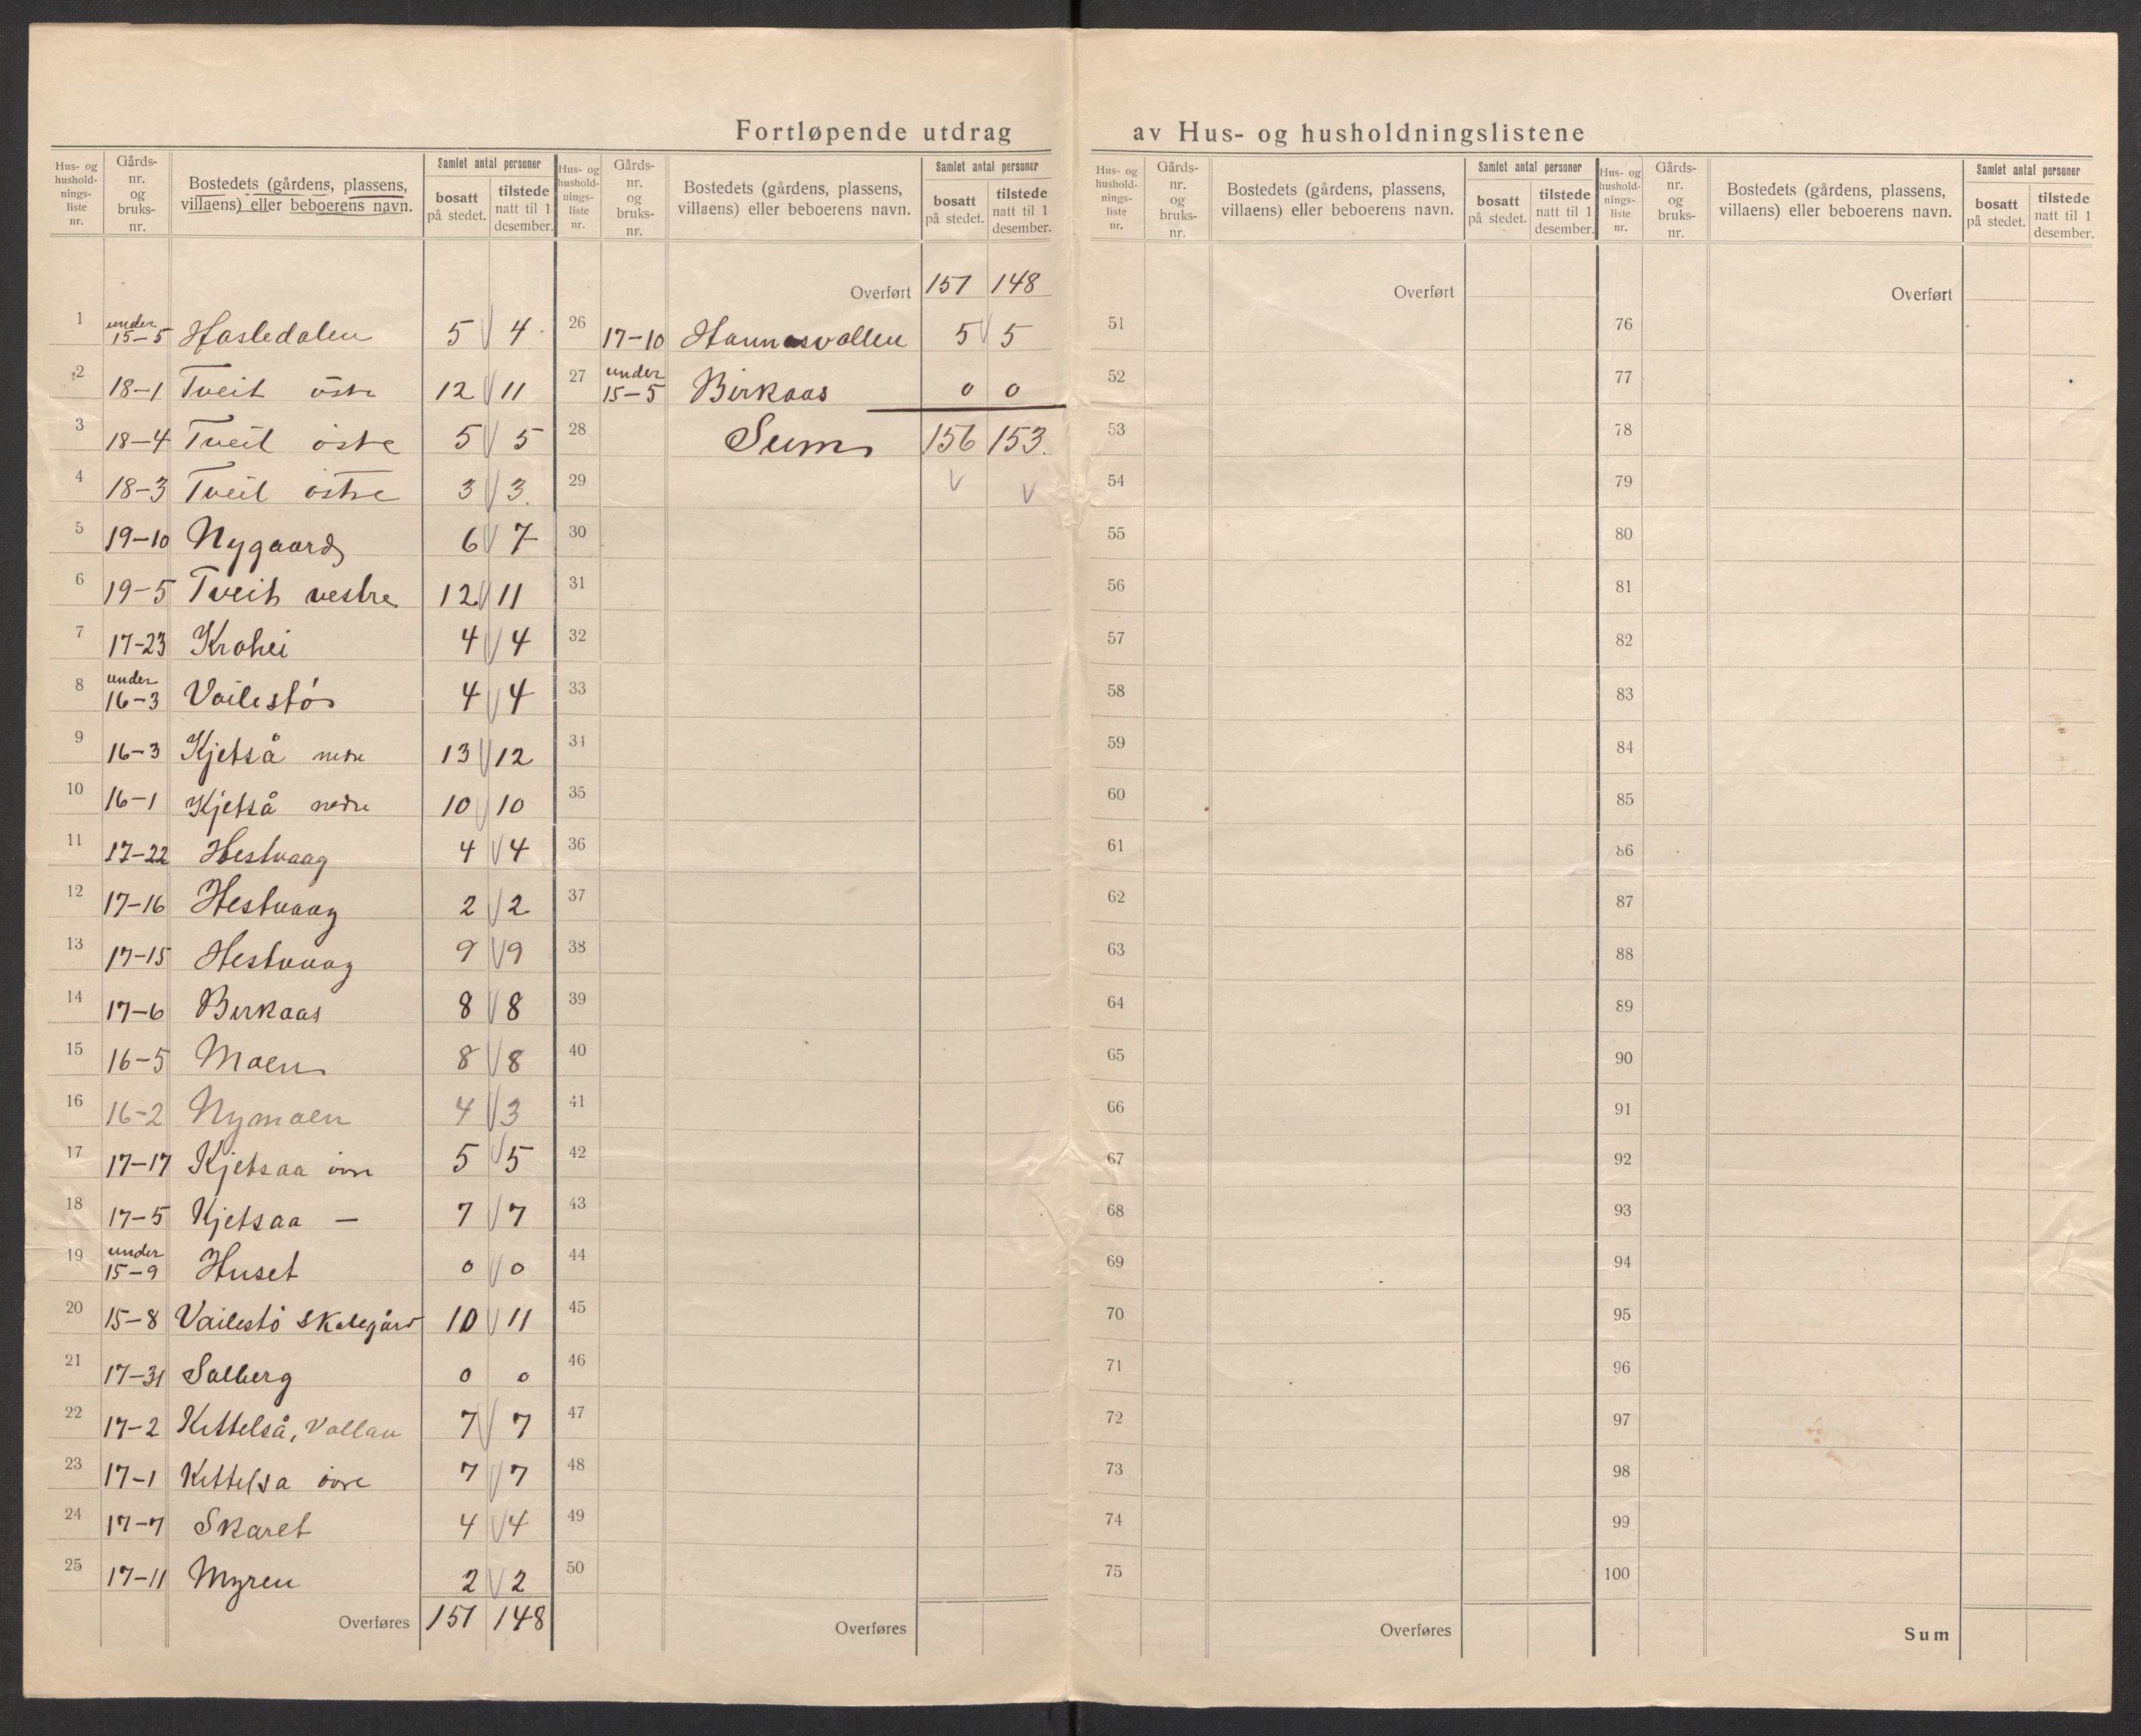 Fortløpende utdrag av Hus- og husholdningslistene
Hus- og hushold-nings-liste nr. | Gårds-nr. og bruks-nr. | Bostedets (gårdens, plassens, villaens) eller beboerens navn. | Samlet antal personer | bosatt på stedet. | tilstede natt til 1 desember.
1 under 15-5 Hasledalen 5 4
2 18-1 Tveit östre 12 11
3 18-4 Tveit östre 5 5
4 18-3 Tveit östre 3 3
5 19-10 Nygaard 6 7
6 19-5 Tveit vestre 12 11
7 17-23 Krohei 4 4
8 under 16-3 Vailestö 4 4
9 16-3 Kjetså nedre 13 12
10 16-1 Kjetså nedre 10 10
11 17-22 Hestvaag 4 4
12 17-16 Hestvaag 2 2
13 17-15 Hestvaag 9 9
14 17-6 Birkaas 8 8
15 16-5 Moen 8 8
16 16-2 Nymoen 4 3
17 17-17 Kjetsaa övre 5 5
18 17-5 Kjetsaa — 7 7
19 under 15-9 Huset 0 0
20 15-8 Vailestö Skolegård 10 11
21 17-31 Solberg 0 0
22 17-2 Kittelså, Vollan 7 7
23 17-1 Kittelsa övre 7 7
24 17-7 Skaret 4 4
25 17-11 Myren 2 2
Overføres 151 148
Hus- og hushold-nings-liste nr. | Gårds-nr. og bruks-nr. | Bostedets (gårdens, plassens, villaens) eller beboerens navn. | Samlet antal personer | bosatt på stedet. | tilstede natt til 1 desember.
Overført 151 148
26 17-10 Hannasvollen 5 5
27 under 15-5 Birkaas 0 0
28 Sum 156 153.
29
30
31
32
33
34
35
36
37
38
39
40
41
42
43
44
45
46
47
48
49
50
Overføres
Hus- og hushold-nings-liste nr. | Gårds-nr. og bruks-nr. | Bostedets (gårdens, plassens, villaens) eller beboerens navn. | Samlet antal personer | bosatt på stedet. | tilstede natt til 1 desember.
Overført
51
52
53
54
55
56
57
58
59
60
61
62
63
64
65
66
67
68
69
70
71
72
73
74
75
Overføres
Hus- og hushold-nings-liste nr. | Gårds-nr. og bruks-nr. | Bostedets (gårdens, plassens, villaens) eller beboerens navn. | Samlet antal personer | bosatt på stedet. | tilstede natt til 1 desember.
Overført
76
77
78
79
80
81
82
83
84
85
86
87
88
89
90
91
92
93
94
95
96
97
98
99
100
Sum